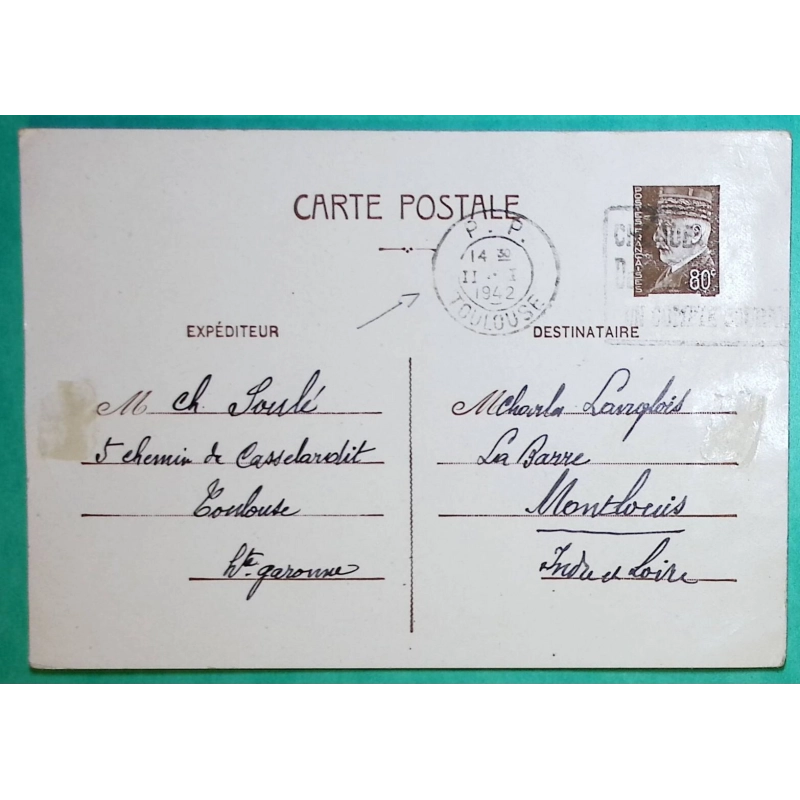 CARTE POSTALE
POSTES FRANÇAISES
80c
P. P.
14 30
II - I
1942
TOULOUSE
UN COMPTE COURANT
EXPÉDITEUR
M ch Soulé
5 chemin de Casselardit
Toulouse
Hte garonne
DESTINATAIRE
M Charles Langlois
La Barre
Montlouis
Indre et Loire